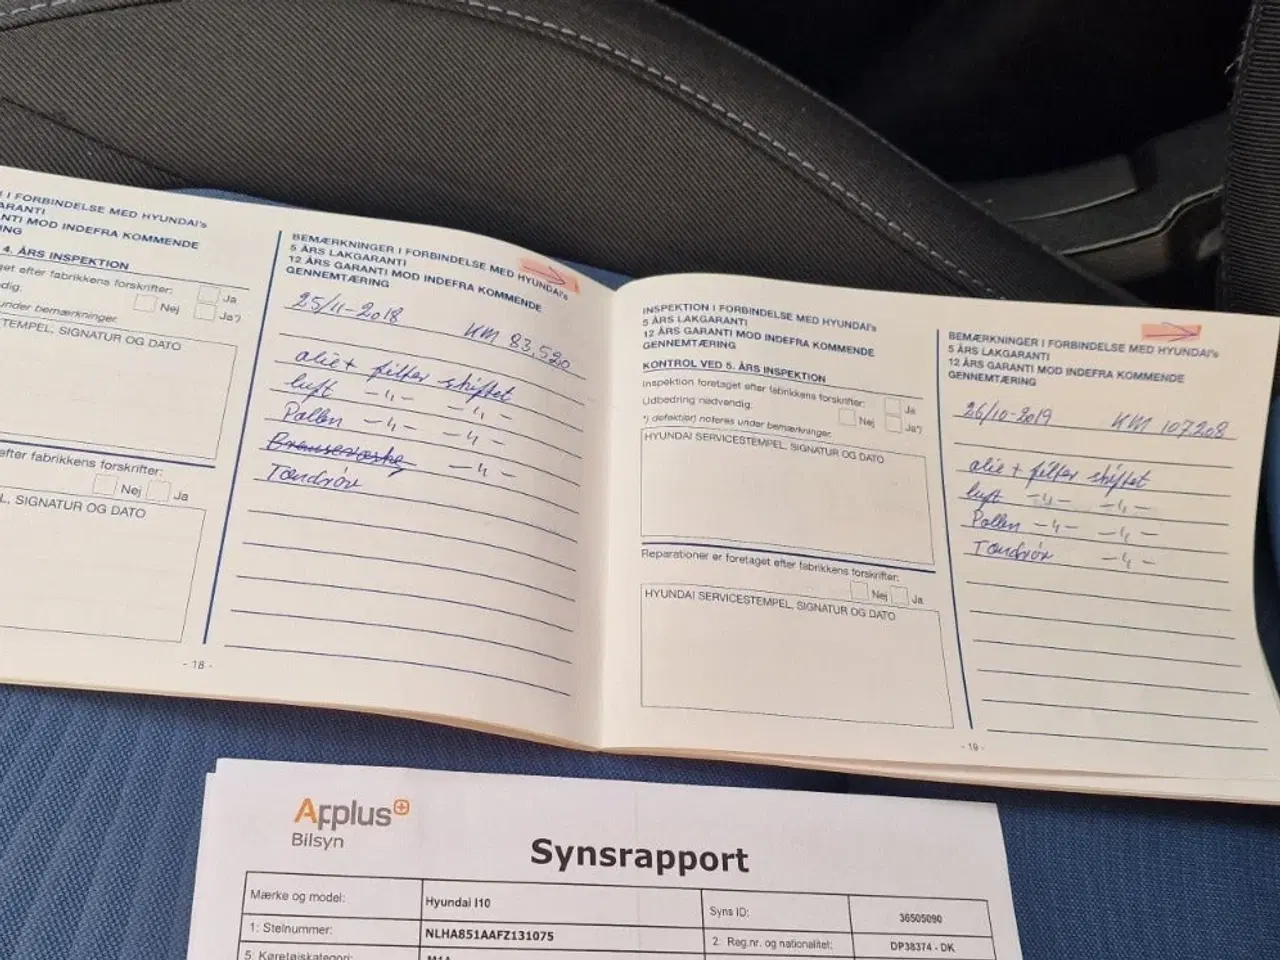 I FORBINDELSE MED HYUNDAI's
ARANTI
NTI MOD INDEFRA KOMMENDE
NG
4. ÅRS INSPEKTION
get efter fabrikkens forskrifter:
Ja
dig:
Nej
Ja*)
under bemærkninger.
TEMPEL, SIGNATUR OG DATO
efter fabrikkens forskrifter:
Nej
Ja
L, SIGNATUR OG DATO
- 18 -
BEMÆRKNINGER I FORBINDELSE MED HYUNDAI's
5 ÅRS LAKGARANTI
12 ÅRS GARANTI MOD INDEFRA KOMMENDE
GENNEMTÆRING
25/11-2018 KM 83,520
olie + filter skiftet
luft -〃- -〃-
Pollen -〃- -〃-
Bremsevæske -〃-
Tændrör
INSPEKTION I FORBINDELSE MED HYUNDAI's
5 ÅRS LAKGARANTI
12 ÅRS GARANTI MOD INDEFRA KOMMENDE
GENNEMTÆRING
KONTROL VED 5. ÅRS INSPEKTION
Inspektion foretaget efter fabrikkens forskrifter:
Ja
Udbedring nødvendig:
Nej
Ja*)
*) defekt(er) noteres under bemærkninger.
HYUNDAI SERVICESTEMPEL, SIGNATUR OG DATO
Reparationer er foretaget efter fabrikkens forskrifter:
Nej
Ja
HYUNDAI SERVICESTEMPEL, SIGNATUR OG DATO
- 19 -
BEMÆRKNINGER I FORBINDELSE MED HYUNDAI's
5 ÅRS LAKGARANTI
12 ÅRS GARANTI MOD INDEFRA KOMMENDE
GENNEMTÆRING
26/10-2019 KM 107208
olie + filter skiftet
luft -〃- -〃-
Pollen -〃- -〃-
Tændrör -〃-
Applus+
Bilsyn
Synsrapport
Mærke og model: Hyundai I10 Syns ID: 36505090
1: Stelnummer: NLHA851AAFZ131075 2: Reg.nr. og nationalitet: DP38374 - DK
5: Køretøjskategori: M1A